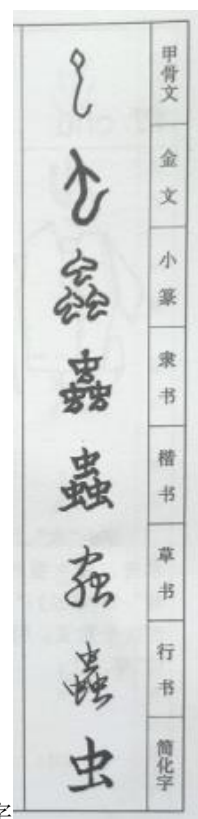 甲骨文
金文
蟲 小篆
蟲 隶书
蟲 楷书
草书
蟲 行书
虫 简化字
字